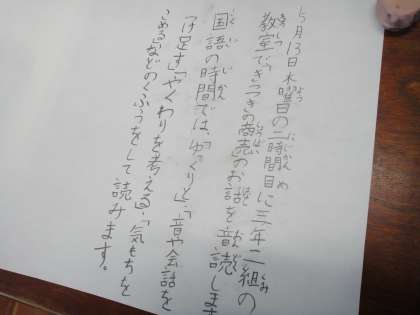 5月13日木曜日の二時間目に三年二組の
教室で「きつつきの商売」のお話を音読します
国語の時間では、「ゆっくりと」「音や会話を
つけ足す」「やくわりを考える」「気もちを
こめる」などのくふうをして読みます。